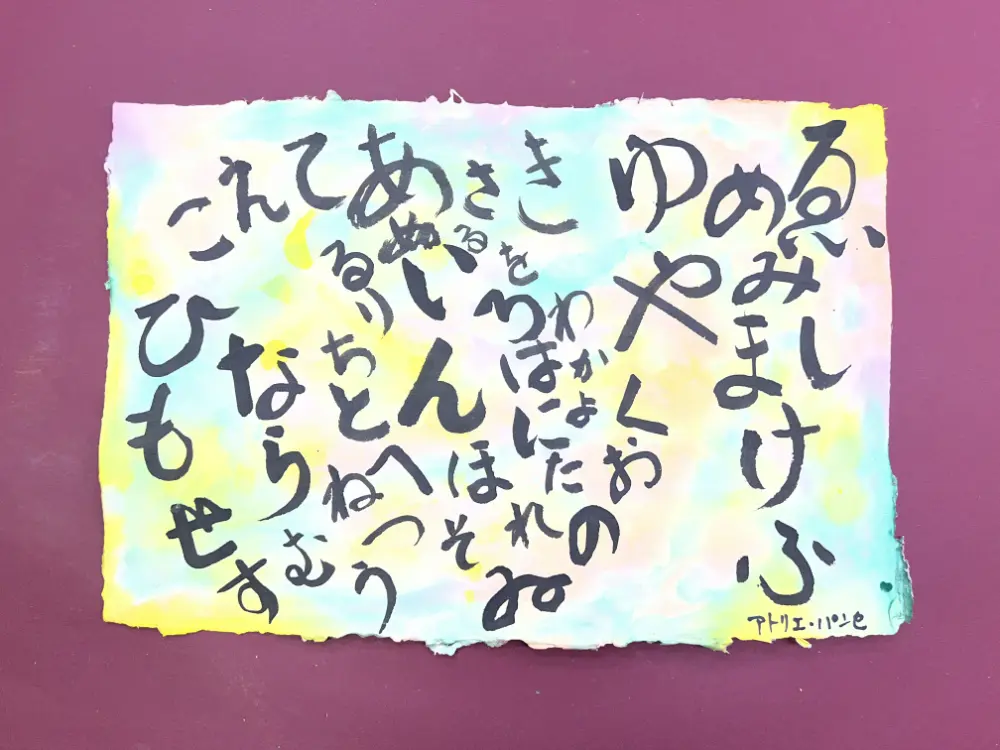 ゑひ
し
めみまけふ
ゆやくおの
きをわかよたれ
さるろはに
あぬいんほそゐ
てるりちとへねつう
えならむ
こひもせす
アトリエ・パンセ